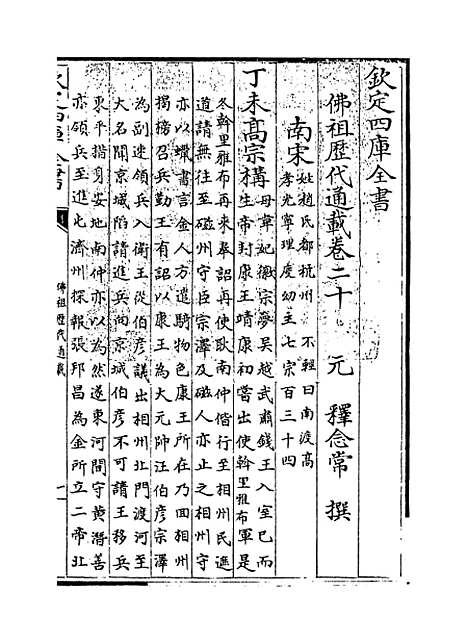 欽定四庫全書
佛祖歴代通載卷二十　元　釋念常　撰
南宋
姓趙氏都杭州　不輕曰南渡高
孝光寧理度幼主七宗百三十四
丁未高宗構
母韋妃徽宗夢吳越武肅錢王入室已而
生帝封康王靖康初嘗出使斡里雅布軍是
冬斡里雅布再来奉詔再使耿南仲偕行至相州民遮
道請無往至磁州守臣宗澤及磁人亦止之相州守
亦以蠟書言金人方遣騎物色康王所在乃回相州
揭榜召兵勤王有詔以康王為大元帥汪伯彦宗澤
為副遂領兵入衛王從伯彦議出相州北門渡河至
大名聞京城陷請進兵向京城伯彦不可請王移兵
東平措身安地南仲亦以為然遂東河間守黄潛善
亦領兵至進屯濟州探報張邦昌為金所立二帝北
佛祖歴代通載